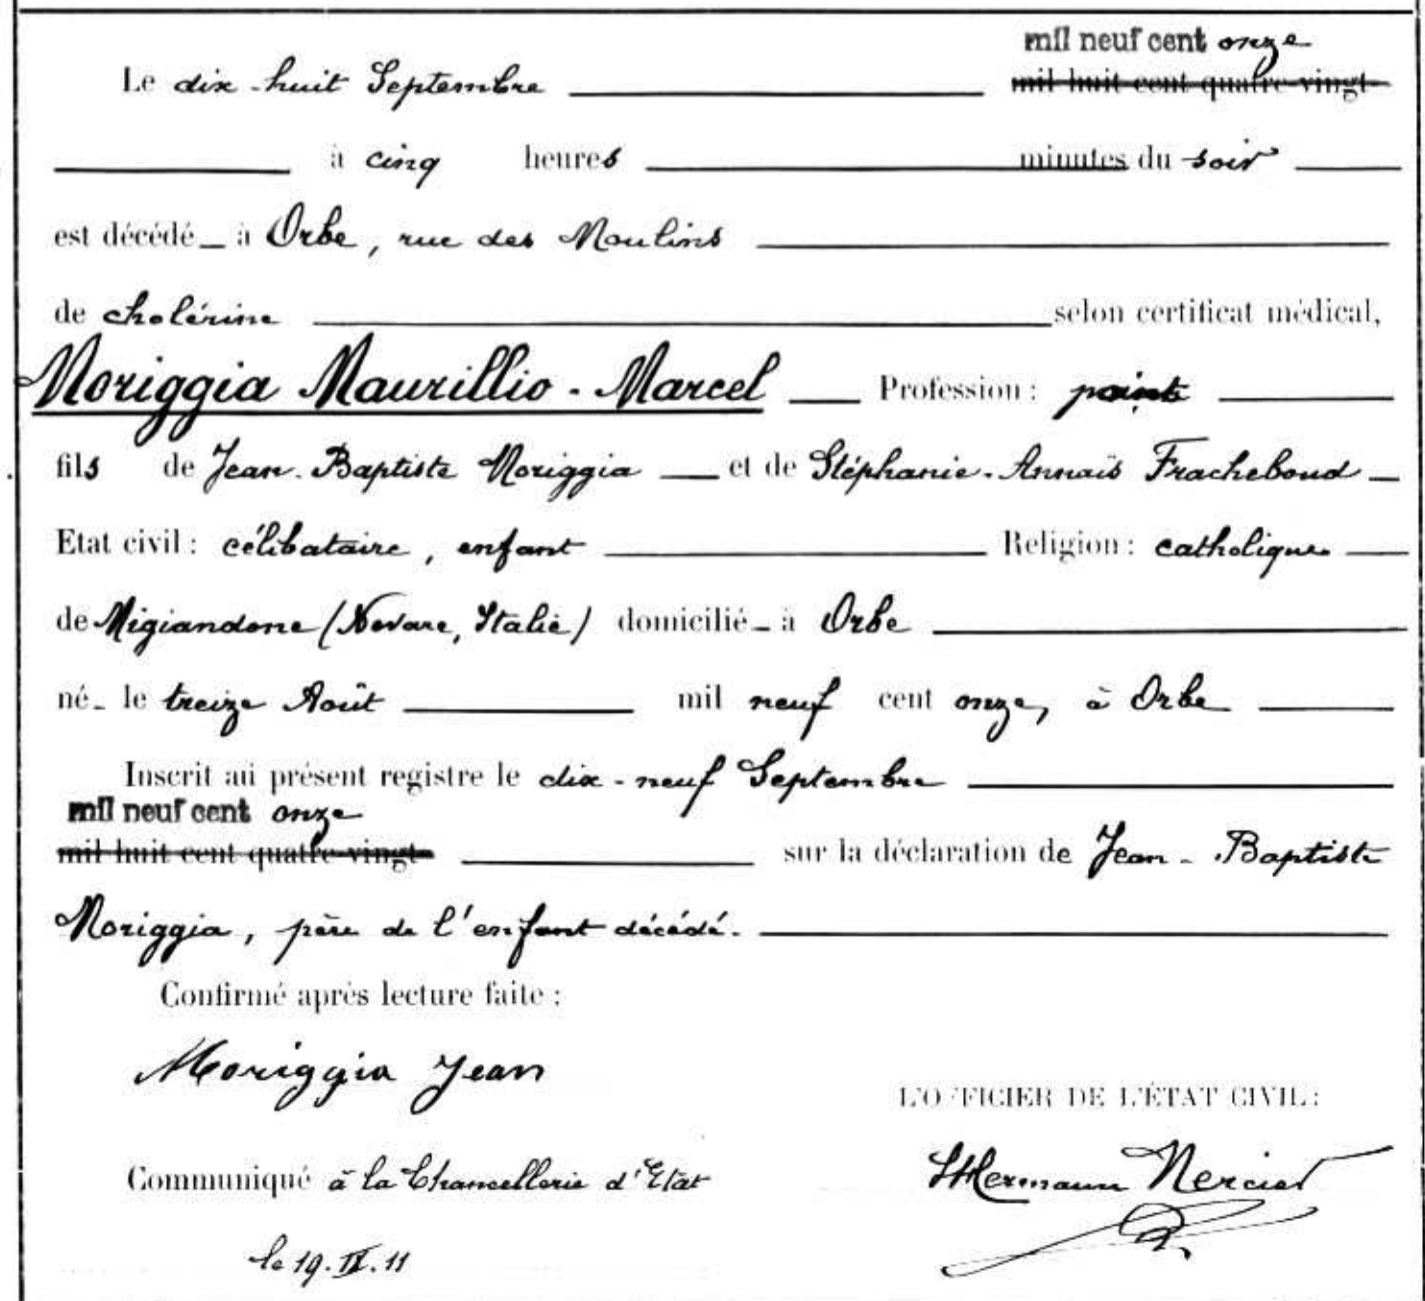 mil neuf cent onze
Le dix-huit Septembre mil huit cent quatre-vingt-
à cinq heures minutes du soir
est décédé à Orbe, rue des Moulins
de cholérine selon certificat médical,
Moriggia Maurillio-Marcel Profession :
fils de Jean-Baptiste Moriggia et de Stéphanie-Annaïs Fracheboud
Etat civil : célibataire, enfant Religion : catholique
de Migiandone (Novare, Italie) domicilié à Orbe
né le treize Août mil neuf cent onze, à Orbe
Inscrit au présent registre le dix-neuf Septembre
mil neuf cent onze
mil huit cent quatre-vingt- sur la déclaration de Jean-Baptiste
Moriggia, père de l'enfant décédé.
Confirmé après lecture faite :
Moriggia Jean
L'OFFICIER DE L'ÉTAT CIVIL :
Communiqué à la Chancellerie d'Etat
Hermann Mercier
le 19.IX.11